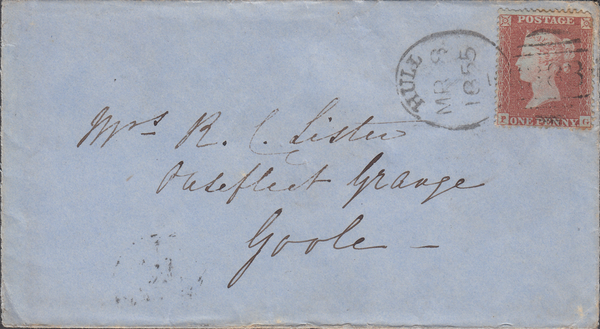 POSTAGE
ONE PENNY
P G
HULL
MR 8
1855
Mrs R. C. Lister
Ousefleet Grange
Goole -